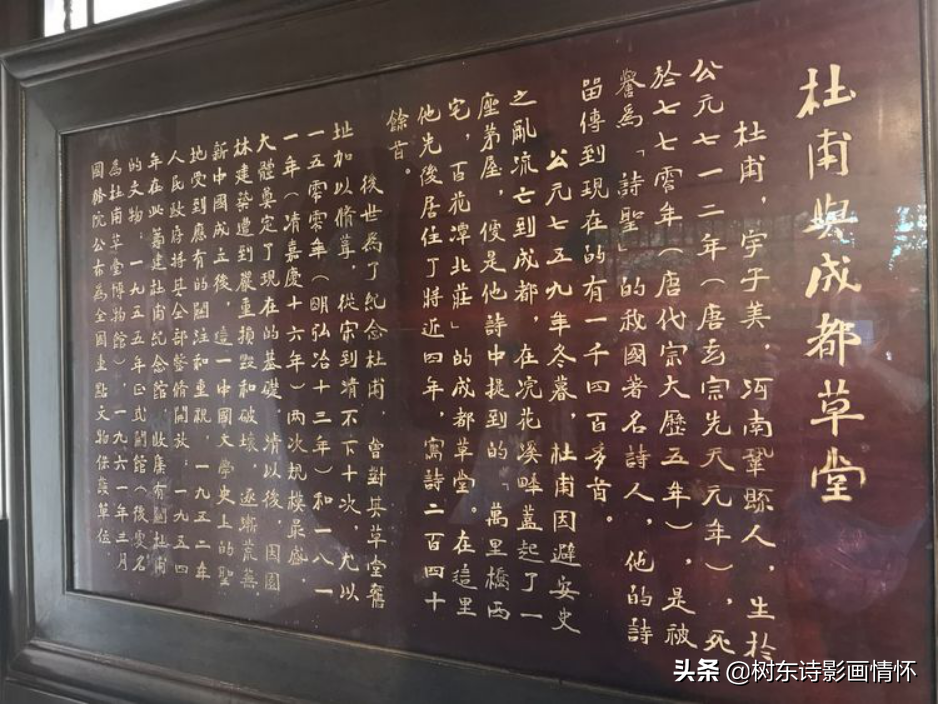 杜甫與成都草堂
杜甫，字子美，河南鞏縣人，生於
公元七一二年（唐玄宗先天元年），死
於七七零年（唐代宗大歷五年），是被
譽為「詩聖」的我國著名詩人，他的詩
留傳到現在的有一千四百多首。
公元七五九年冬暮，杜甫因避安史
之亂流亡到成都，在浣花溪畔蓋起了一
座茅屋，便是他詩中提到的「萬里橋西
宅，百花潭北莊」的成都草堂。在這里
他先後居住了將近四年，寫詩二百四十
餘首。
後世為了紀念杜甫，曾對其草堂舊
址加以修葺，從宋到清不下十次，尤以
一五零零年（明弘治十三年）和一八一
一年（清嘉慶十六年）兩次規模最盛，
大體奠定了現在的基礎。清以後，因園
林建築遭到嚴重損毀和破壞，逐漸荒蕪。
新中國成立後，這一中國文學史上的聖
地受到應有的關注和重視，一九五二年
人民政府將其全部整脩開放；一九五四
年在此籌建杜甫紀念館，收廣有關杜甫
的文物；一九五五年正式開館（後更名
為杜甫草堂博物館），一九六一年三月
國務院公布為全國重點文物保護單位。
头条 @树东诗影画情怀